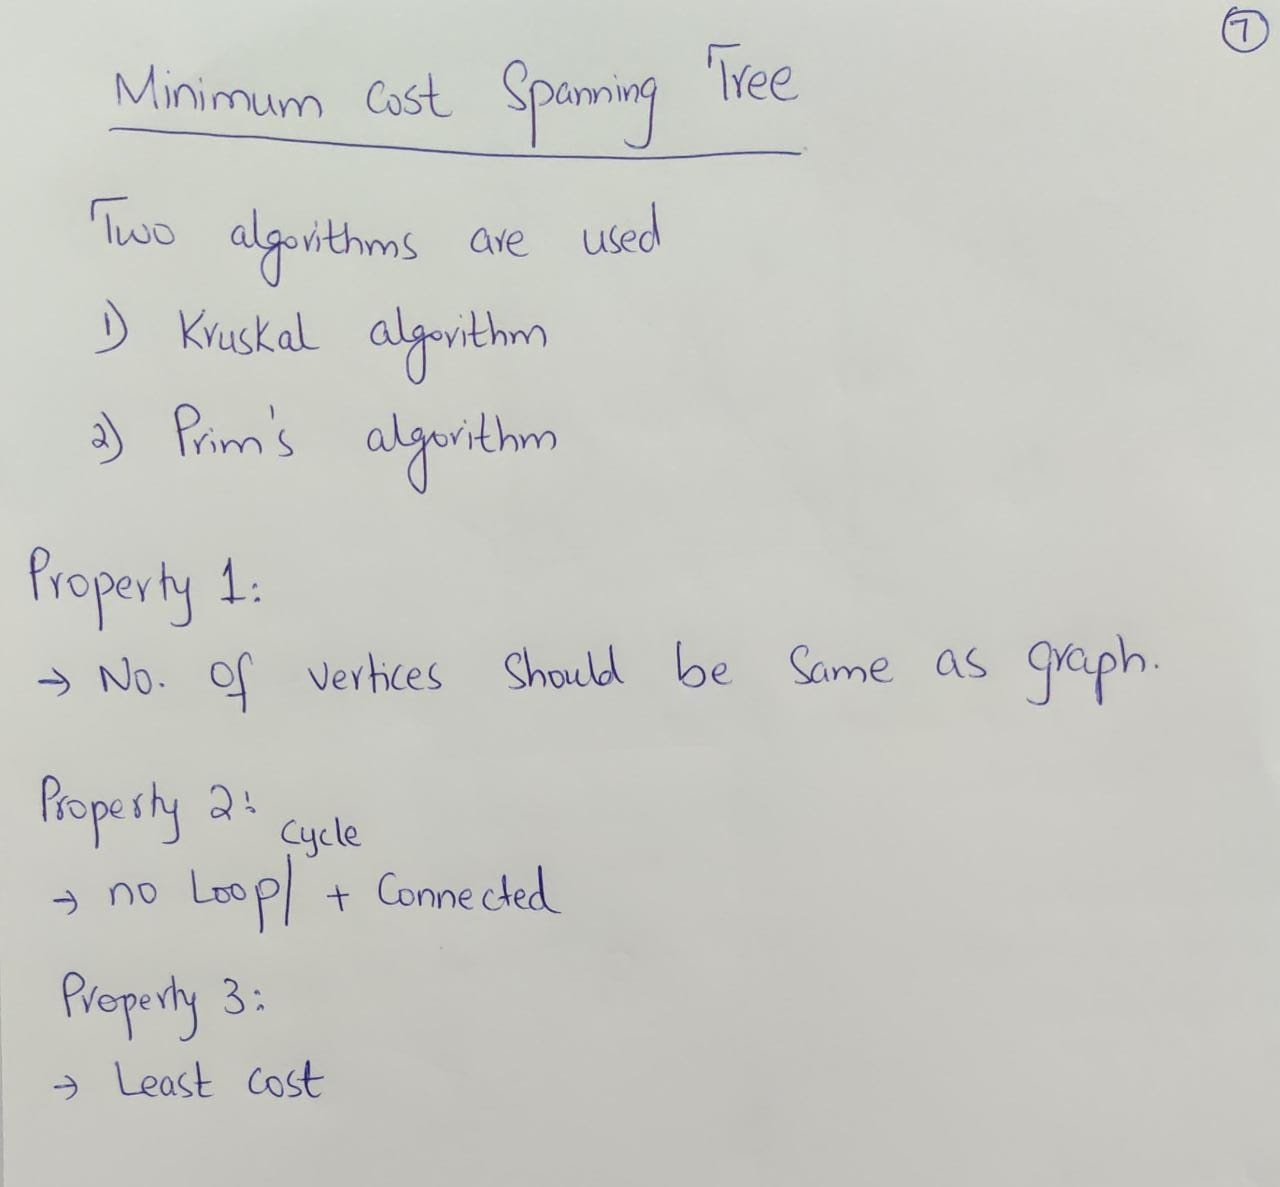 7
Minimum Cost Spanning Tree
Two algorithms are used
1) Kruskal algorithm
2) Prim's algorithm
Property 1:
→ No. of vertices should be same as graph.
Property 2:
cycle
→ no Loop/ + Connected
Property 3:
→ Least cost